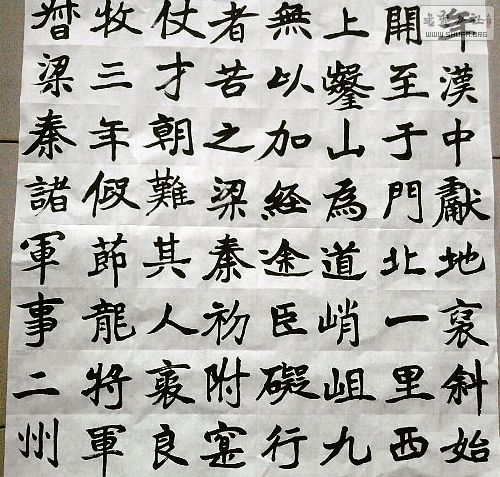 年漢中獻地裒斜始
開至于門北一里西
上鑿山為道峭岨九
無以加経途臣礙行
者苦之梁秦初附寔
仗才朝難其人裒良
牧三年假節龍將軍
督梁秦諸軍事二州
WWW.SHUFA.ORG